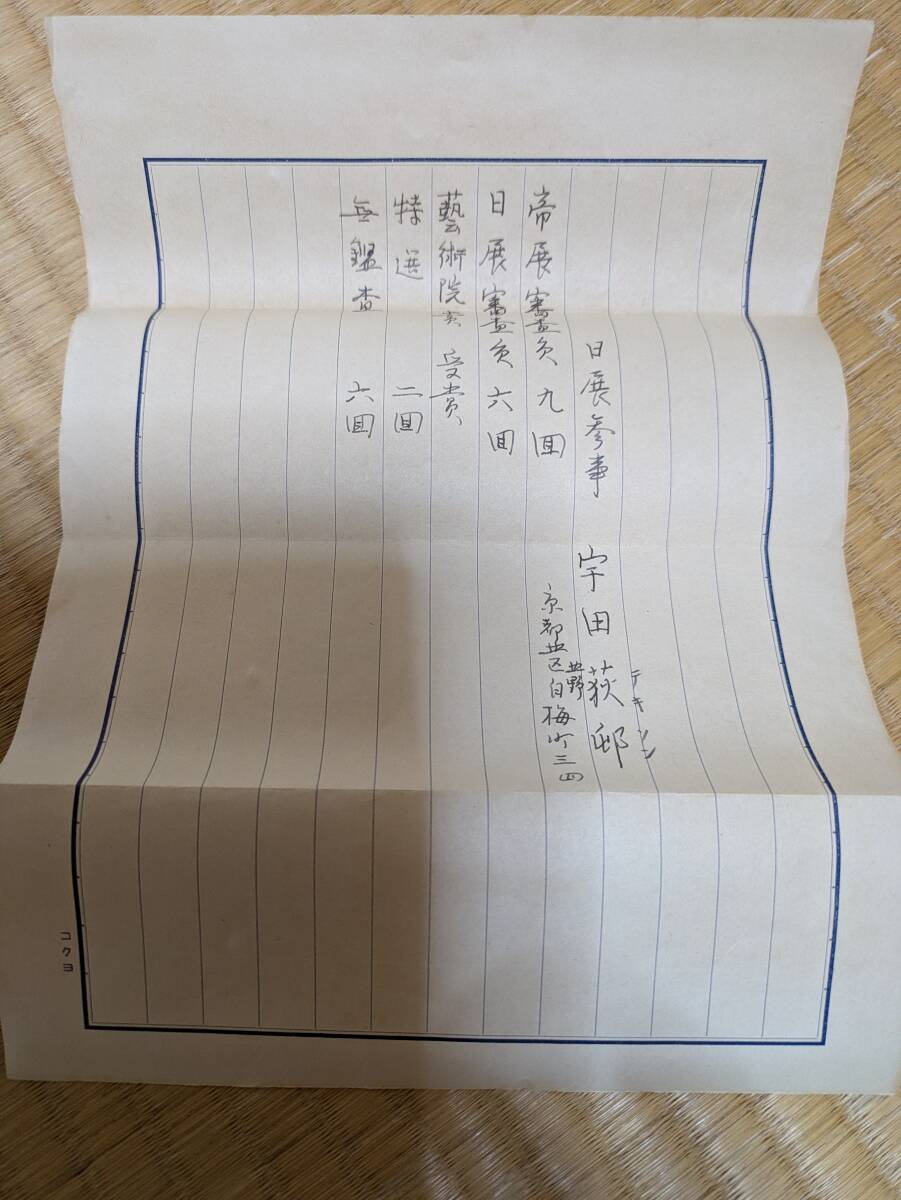 日展参事 宇田荻邨
テキソン
京都北区北野白梅町三四
帝展審査員 九回
日展審査員 六回
藝術院賞 受賞
特選 二回
無鑑査 六回
コクヨ